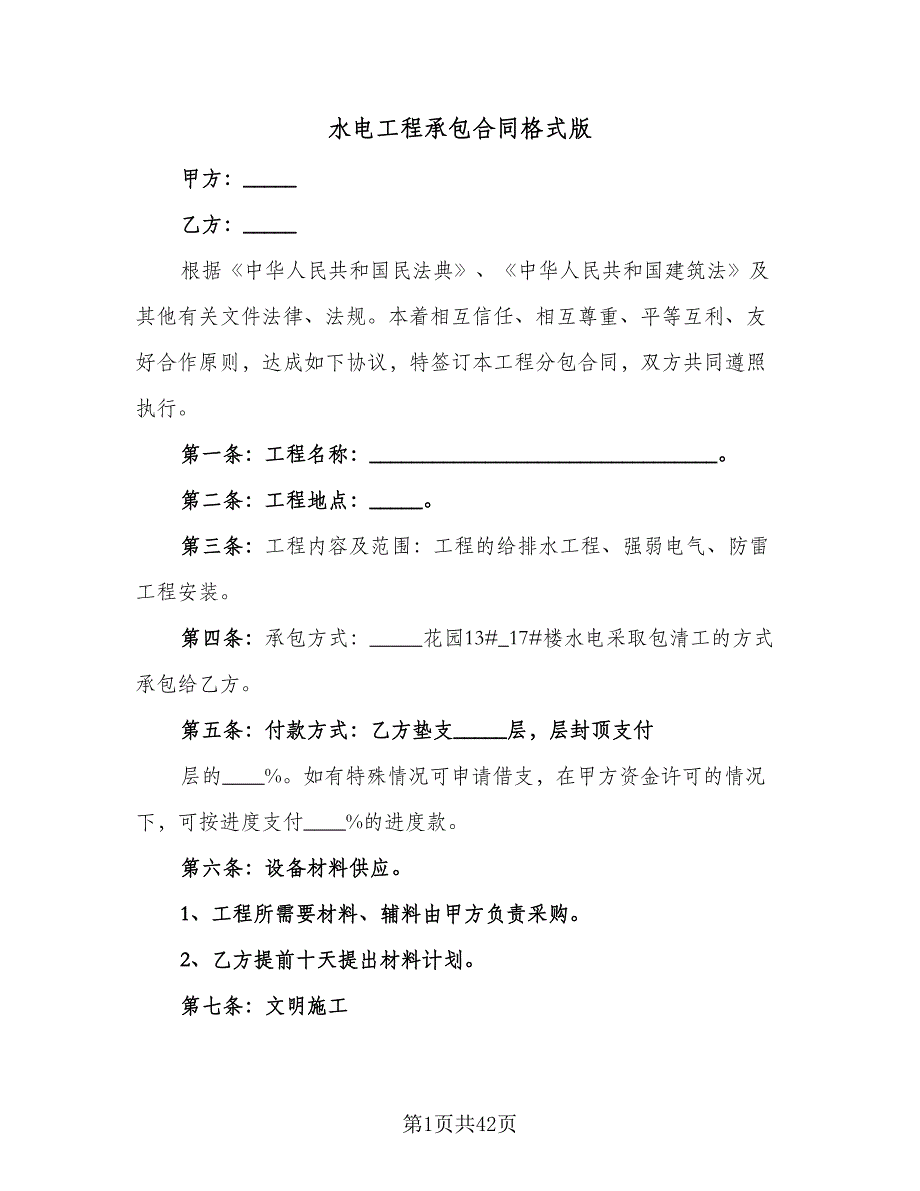 水电工程承包合同格式版
甲方：_____
乙方：_____
根据《中华人民共和国民法典》、《中华人民共和国建筑法》及
其他有关文件法律、法规。本着相互信任、相互尊重、平等互利、友
好合作原则，达成如下协议，特签订本工程分包合同，双方共同遵照
执行。
第一条：工程名称：_________________________________。
第二条：工程地点：_____。
第三条：工程内容及范围：工程的给排水工程、强弱电气、防雷
工程安装。
第四条：承包方式：_____花园13#_17#楼水电采取包清工的方式
承包给乙方。
第五条：付款方式：乙方垫支_____层，层封顶支付
层的____%。如有特殊情况可申请借支，在甲方资金许可的情况
下，可按进度支付____%的进度款。
第六条：设备材料供应。
1、工程所需要材料、辅料由甲方负责采购。
2、乙方提前十天提出材料计划。
第七条：文明施工
第1页共42页